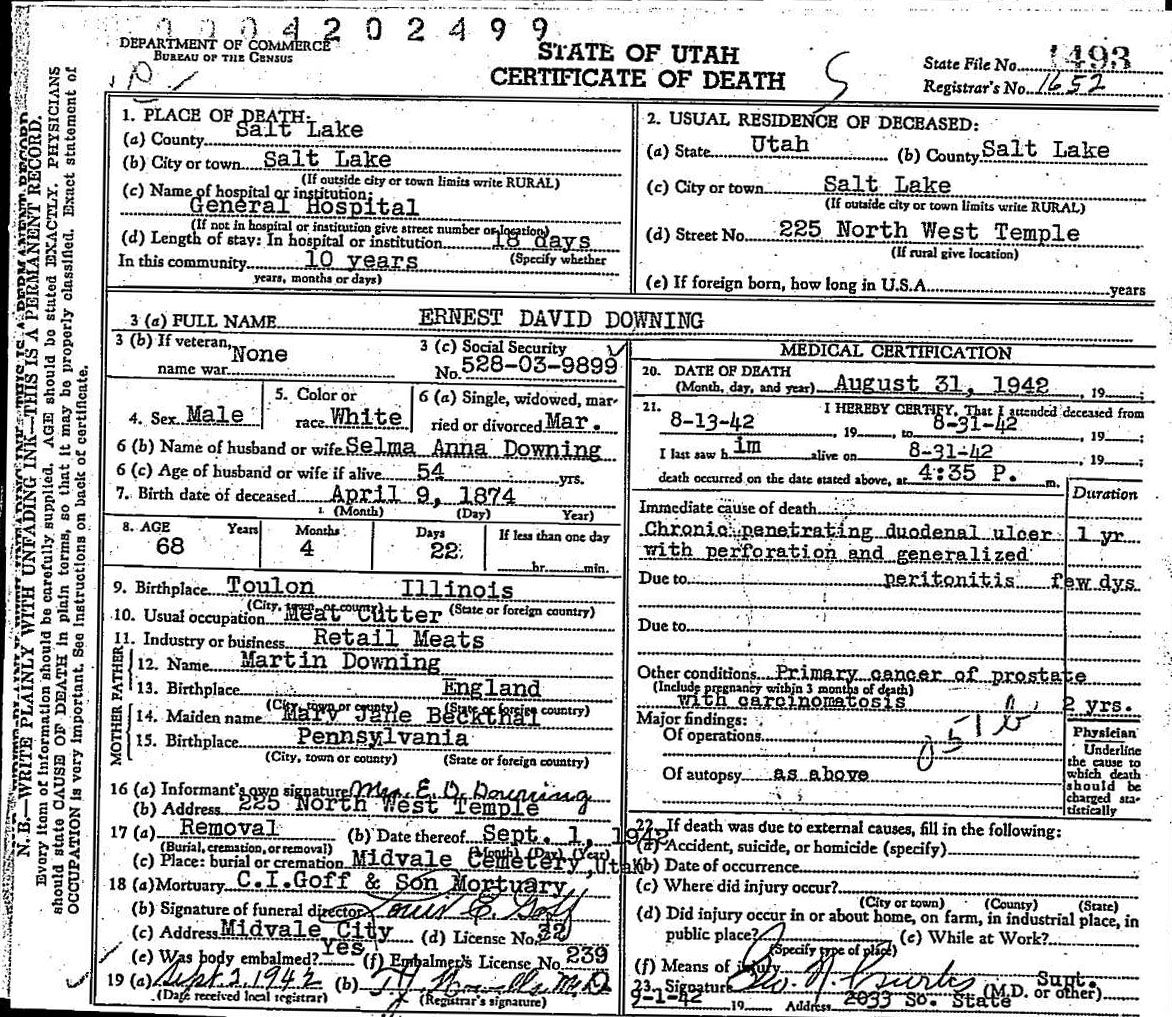 0004202499
DEPARTMENT OF COMMERCE
BUREAU OF THE CENSUS
STATE OF UTAH
CERTIFICATE OF DEATH
S
State File No. 1493
Registrar's No. 1652
N. B.—WRITE PLAINLY WITH UNFADING INK—THIS IS A PERMANENT RECORD.
Every item of information should be carefully supplied. AGE should be stated EXACTLY. PHYSICIANS
should state CAUSE OF DEATH in plain terms, so that it may be properly classified. Exact statement of
OCCUPATION is very important. See instructions on back of certificate.
1. PLACE OF DEATH:
(a) County Salt Lake
(b) City or town Salt Lake
(If outside city or town limits write RURAL)
(c) Name of hospital or institution:
General Hospital
(If not in hospital or institution give street number or location)
(d) Length of stay: In hospital or institution 18 days
In this community 10 years (Specify whether
years, months or days)
2. USUAL RESIDENCE OF DECEASED:
(a) State Utah (b) County Salt Lake
(c) City or town Salt Lake
(If outside city or town limits write RURAL)
(d) Street No. 225 North West Temple
(If rural give location)
(e) If foreign born, how long in U.S.A. years
3 (a) FULL NAME ERNEST DAVID DOWNING
3 (b) If veteran, name war None
3 (c) Social Security No. 528-03-9899
4. Sex Male
5. Color or race White
6 (a) Single, widowed, married or divorced Mar.
6 (b) Name of husband or wife Selma Anna Downing
6 (c) Age of husband or wife if alive 54 yrs.
7. Birth date of deceased April 9, 1874
(Month) (Day) Year)
8. AGE Years Months Days If less than one day
68 4 22 hr. min.
9. Birthplace Toulon Illinois
(City, town, or county) (State or foreign country)
10. Usual occupation Meat Cutter
11. Industry or business Retail Meats
FATHER
12. Name Martin Downing
13. Birthplace England
(City, town or county) (State or foreign country)
MOTHER
14. Maiden name Mary Jane Beckthal
15. Birthplace Pennsylvania
(City, town or county) (State or foreign country)
16 (a) Informant's own signature Mrs. E. D. Downing
(b) Address 225 North West Temple
17 (a) Removal (b) Date thereof Sept. 1, 1942
(Burial, cremation, or removal) (Month) (Day) (Year)
(c) Place: burial or cremation Midvale Cemetery, Utah
18 (a) Mortuary C.I.Goff & Son Mortuary
(b) Signature of funeral director Louis E. Goff
(c) Address Midvale City (d) License No. 32
(e) Was body embalmed? Yes (f) Embalmer's License No 239
19 (a) Sept 2, 1942 (b) M.D.
(Date received local registrar) (Registrar's signature)
MEDICAL CERTIFICATION
20. DATE OF DEATH
(Month, day, and year) August 31, 1942, 19 ;
21. I HEREBY CERTIFY, That I attended deceased from
8-13-42, 19 , to 8-31-42, 19 ;
I last saw h im alive on 8-31-42, 19 ;
death occurred on the date stated above, at 4:35 P. m.
Duration
Immediate cause of death
Chronic penetrating duodenal ulcer 1 yr
with perforation and generalized
Due to peritonitis few dys
Due to
Other conditions Primary cancer of prostate
(Include pregnancy within 3 months of death)
with carcinomatosis 2 yrs.
Major findings:
Of operations
051b
Of autopsy as above
Physician
Underline
the cause to
which death
should be
charged sta-
tistically
22. If death was due to external causes, fill in the following:
(a) Accident, suicide, or homicide (specify)
(b) Date of occurrence
(c) Where did injury occur?
(City or town) (County) (State)
(d) Did injury occur in or about home, on farm, in industrial place, in
public place? (e) While at Work?
(Specify type of place)
(f) Means of injury
23. Signature Geo. N. Curtis Supt.
(M.D. or other)
9-1-42 19 Address 2033 So. State